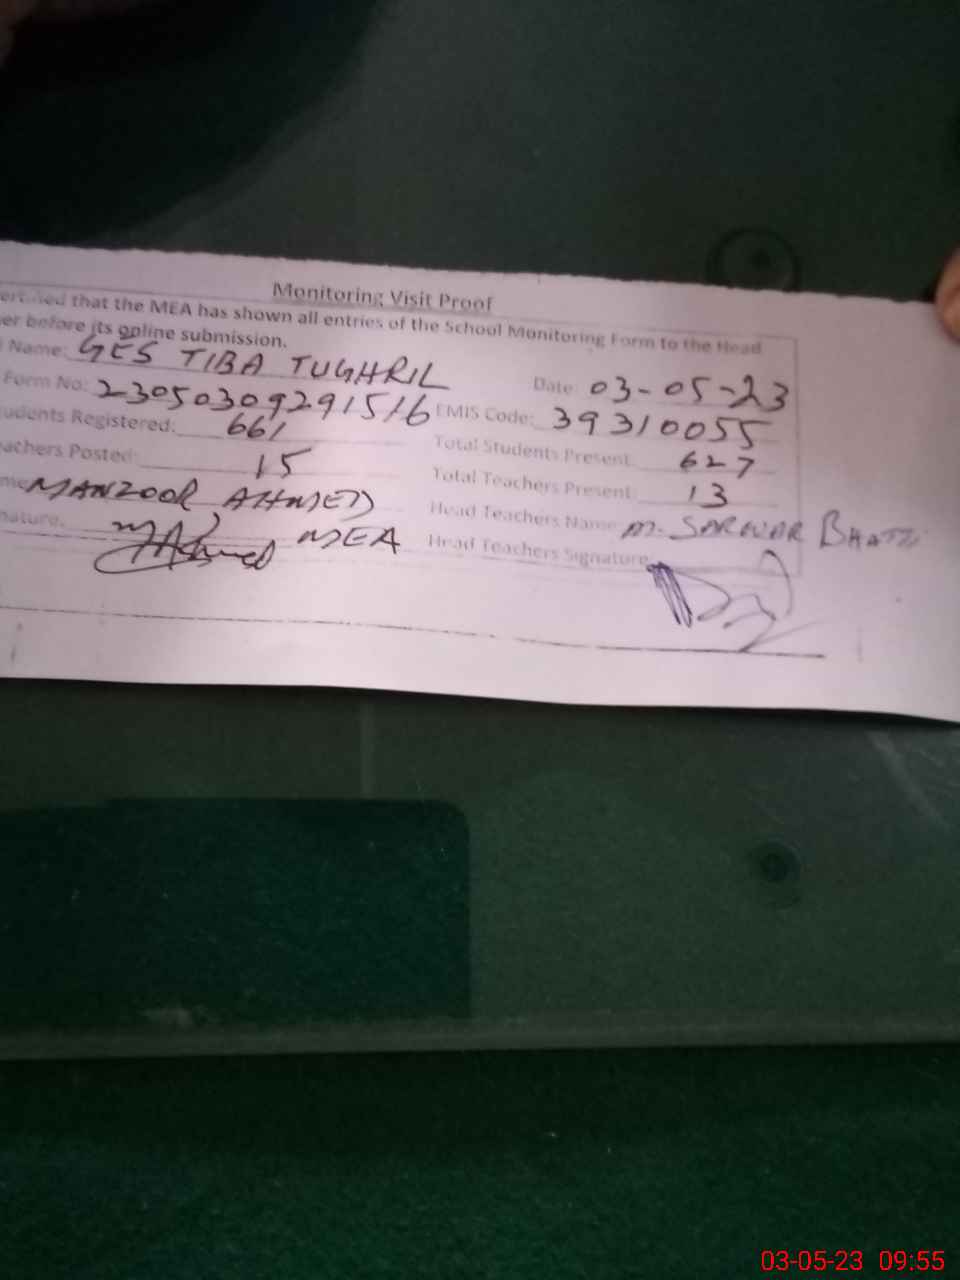 Monitoring Visit Proof
that the MEA has shown all entries of the School Monitoring Form to the Head
er before its online submission.
Name: GES TIBA TUGHRIL Date: 03-05-23
Form No: 23050309291516 EMIS Code: 39310055
udents Registered: 661 Total Students Present: 627
achers Posted: 15 Total Teachers Present: 13
me MANZOOR AHMED Head Teachers Name: M. SARWAR BHATTI
nature. MAhmed MEA Head Teachers Signature:
03-05-23 09:55